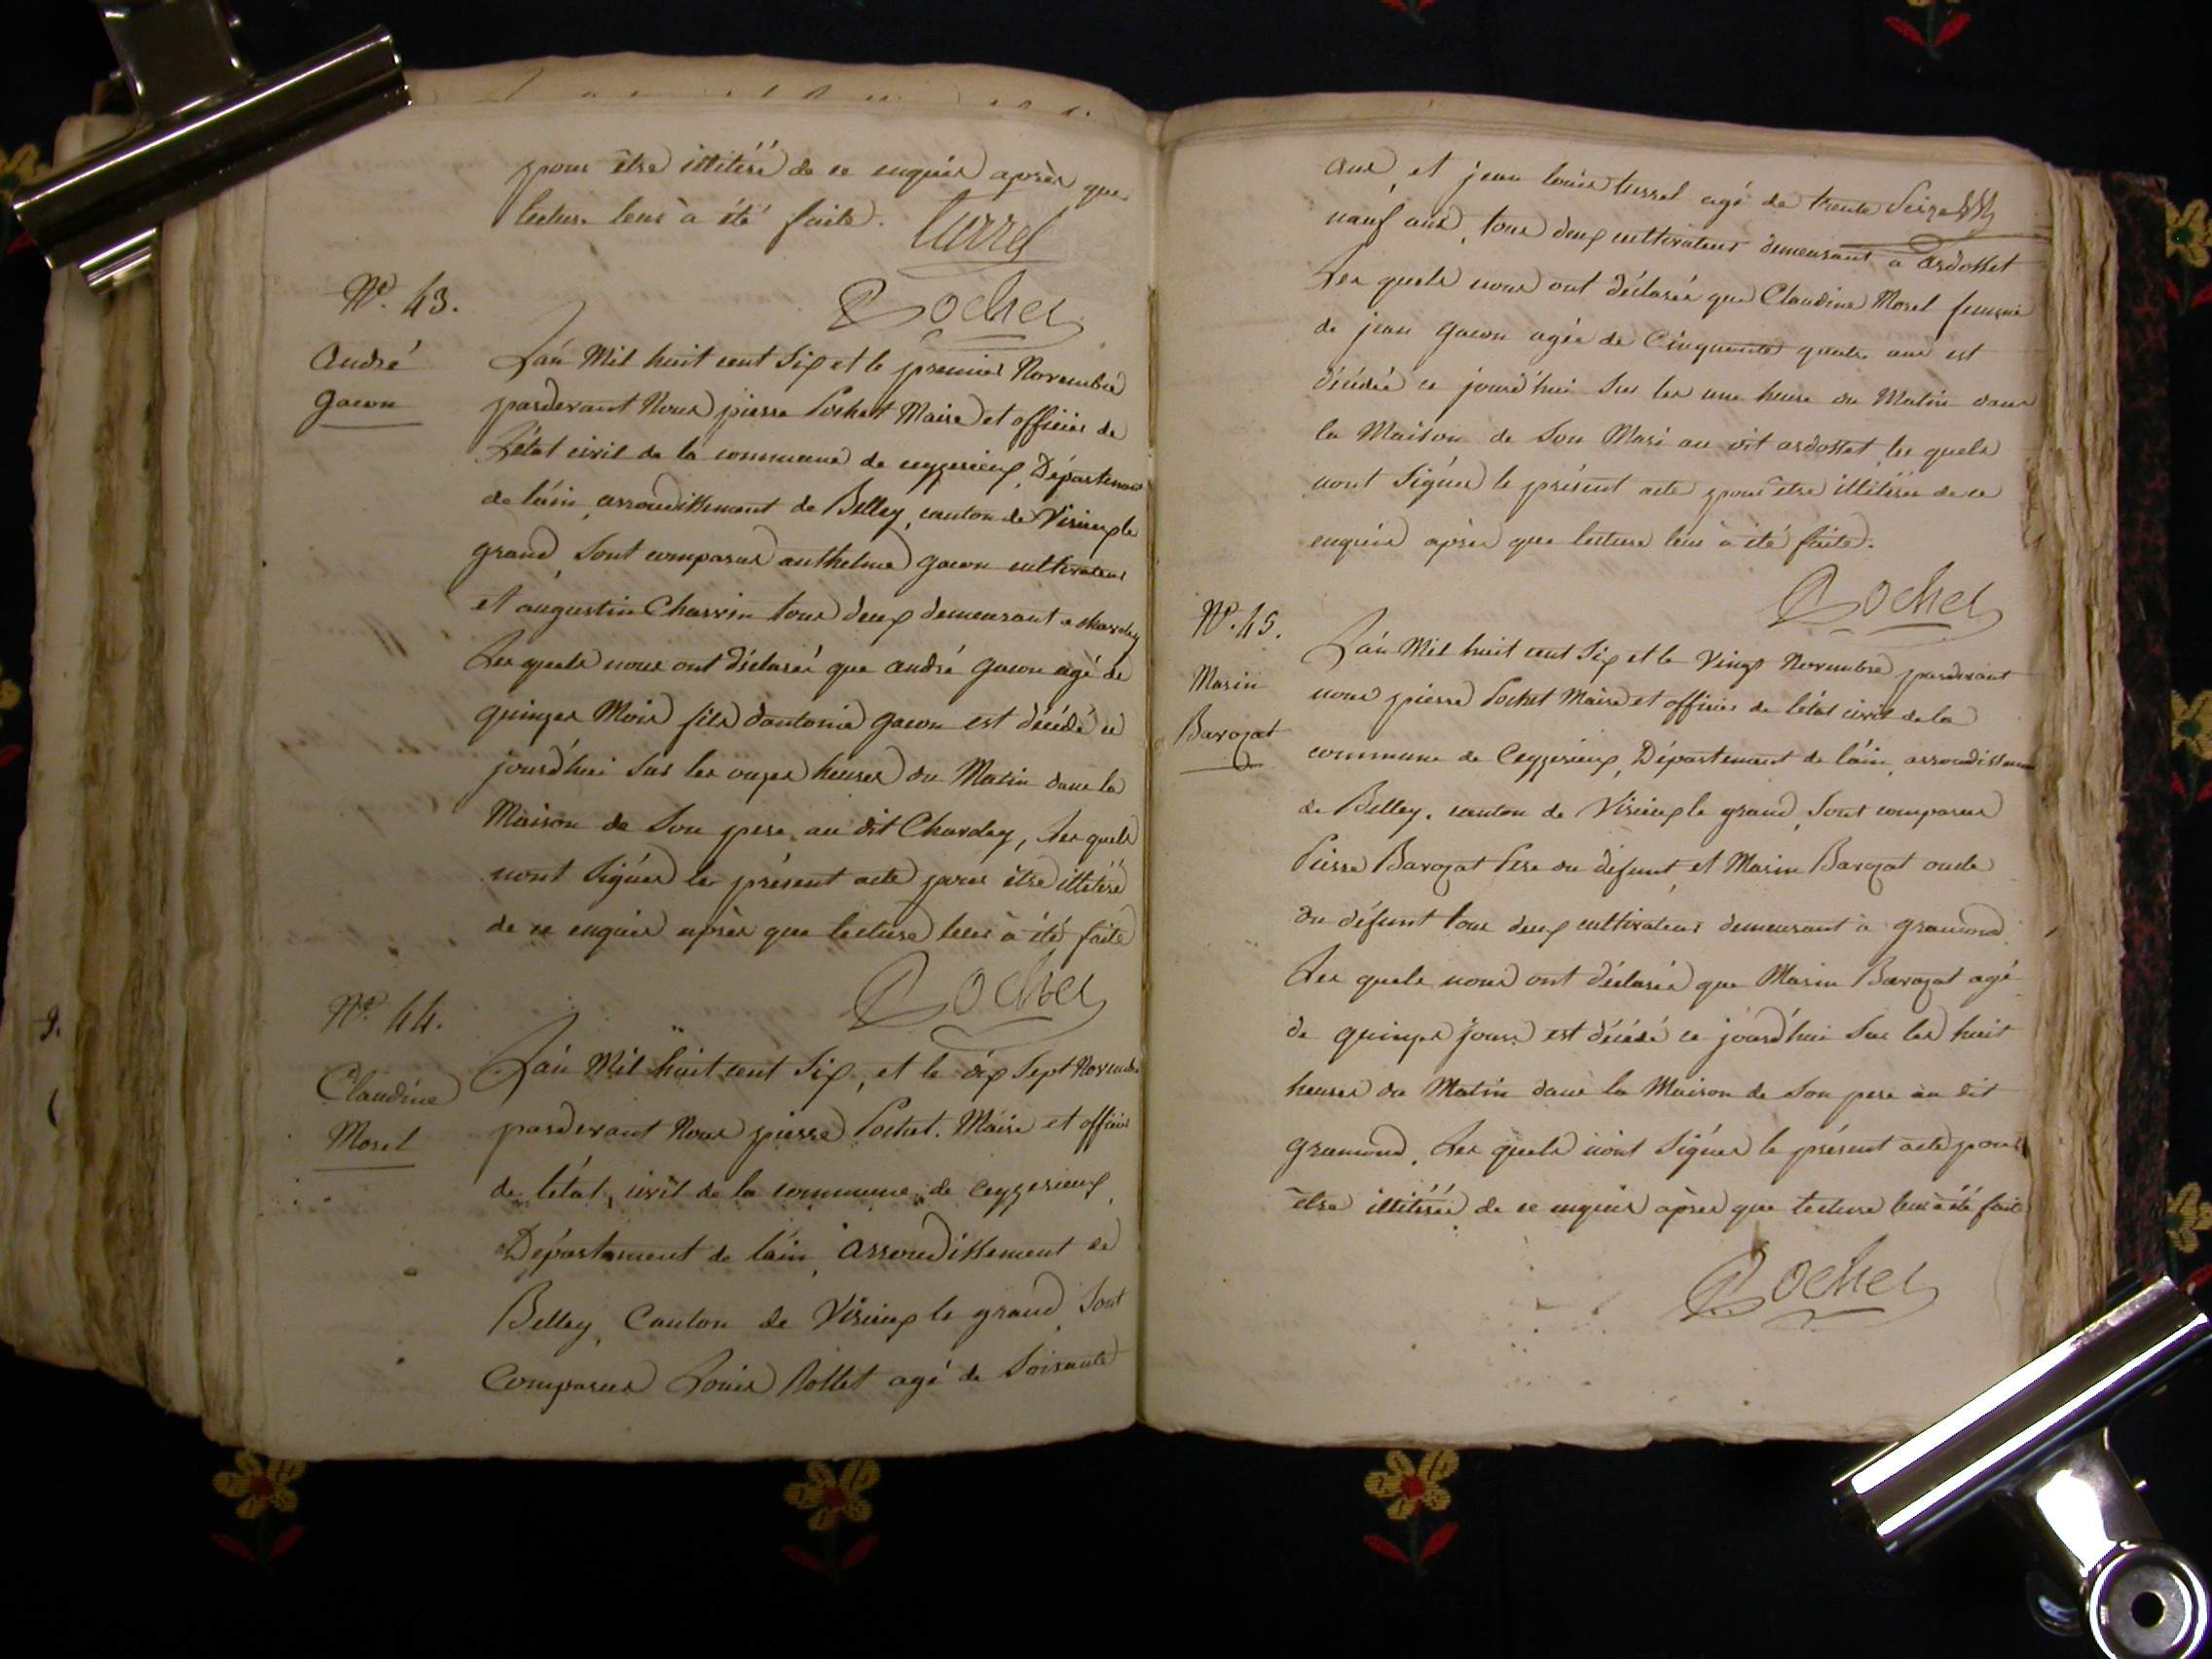 pour être illitéré de ce enquis après que
lecture leur à été faite. turrel
Pochet
Nº. 43.
André
gacon
L'an Mil huit cent Six et le premier Novembre
pardevant Nous pierre Pochet Maire et officier de
L'état civil de la commune de ceyzerieux, Département
de l'ain, arrondissement de Belley, canton de Virieux le
grand, Sont comparus anthelme gacon cultivateur
et augustin Charvin tous deux demeurant a chavoley
Les quels nous ont déclaré que andré gacon agé de
quinze Mois fils dantoine gacon est décédé ce
jourd'hui Sur les onzes heures du Matin dans la
Maison de Son pere au dit Chavoley, Les quels
nont Signés le présent acte pour être illitéré
de ce enquis après que lecture leur à été faite
Pochet
Nº. 44.
Claudine
Morel
L'an Mil huit cent Six, et le dix Sept Novembre
pardevant Nous pierre Pochet. Maire et officier
de l'état civil de la commune de ceyzerieux,
Département de l'ain, arrondissement de
Belley, Canton de Virieux le grand, Sont
Comparus Louis Rollet agé de Soixante
ans, et jean louis turrel agé de trente Seize
neuf ans, tous deux cultivateurs demeurant à ardosset
Les quels nous ont déclarés que Claudine Morel femme
de jean gacon agée de Cinquante quatre ans est
décédée ce jourd'hui Sur les une heure du Matin dans
la Maison de Son Mari au dit ardosset, les quels
nont Signés le présent acte pour être illitérés de ce
enquis après que lecture leur à été faite.
Pochet
Nº. 45.
Marin
Barozat
L'an Mil huit cent Six et le Vingt Novembre pardevant
nous pierre Pochet Maire et officier de l'état civil de la
commune de Ceyzerieux, Département de l'ain, arrondissement
de Belley, canton de Virieux le grand, Sont comparus
Pierre Barozat Pere du défunt, et Marin Barozat oncle
du défunt tous deux cultivateurs demeurant à gramond
Les quels nous ont déclarés que Marin Barozat agé
de quinzes jours est décédé ce jourd'hui Sur les huit
heures du Matin dans la Maison de Son pere au dit
gramond, Les quels n'ont Signés le présent acte pour
être illitérés de ce enquis après que lecture leur à été faite
Pochet